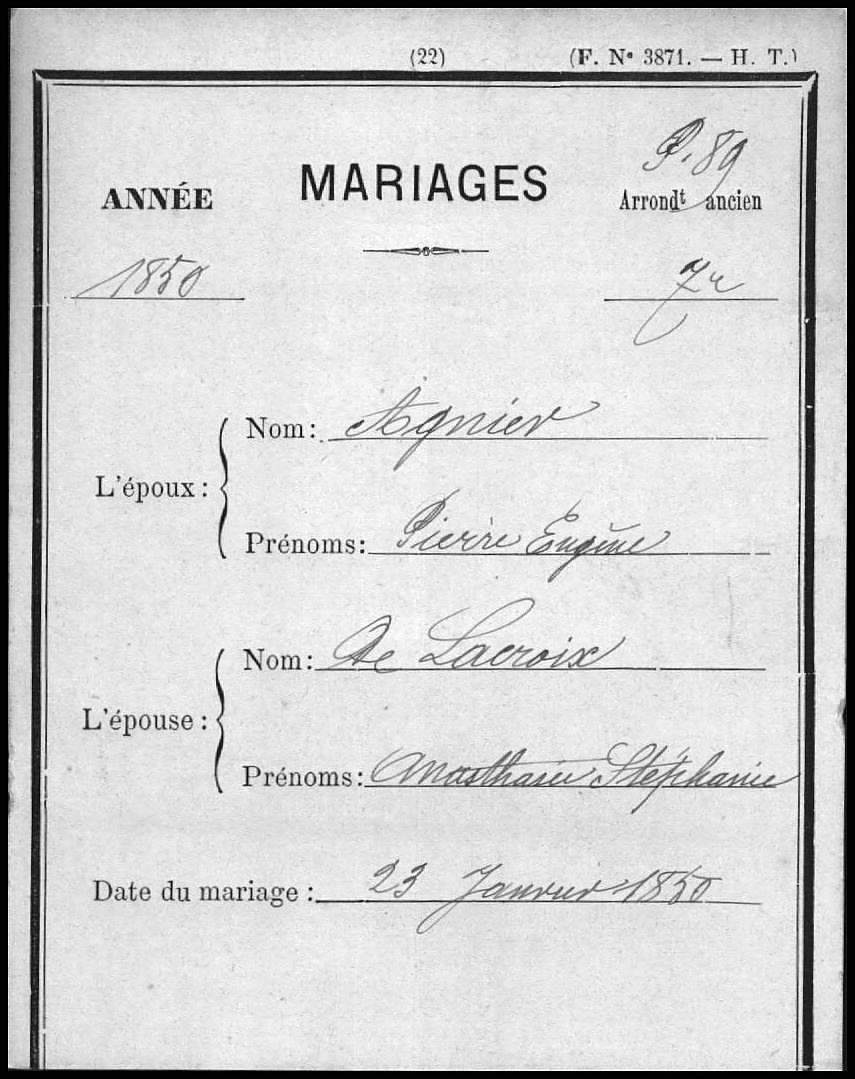 (22) (F. N° 3871. — H. T.)
P. 89
ANNÉE MARIAGES Arrondt ancien
1850 7e
L'époux :
Nom : Agnier
Prénoms : Pierre Eugène
L'épouse :
Nom : De Lacroix
Prénoms : Anasthasie Stéphanie
Date du mariage : 23 Janvier 1850